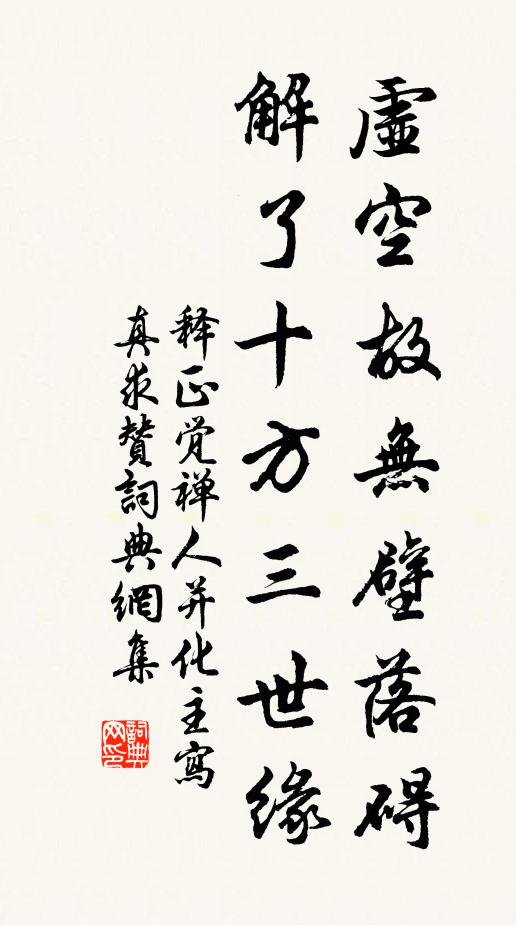 虛空故無壁落碍
解了十方三世緣
释正觉禅人并化主寫
真求贊詞典網集
詞典网印